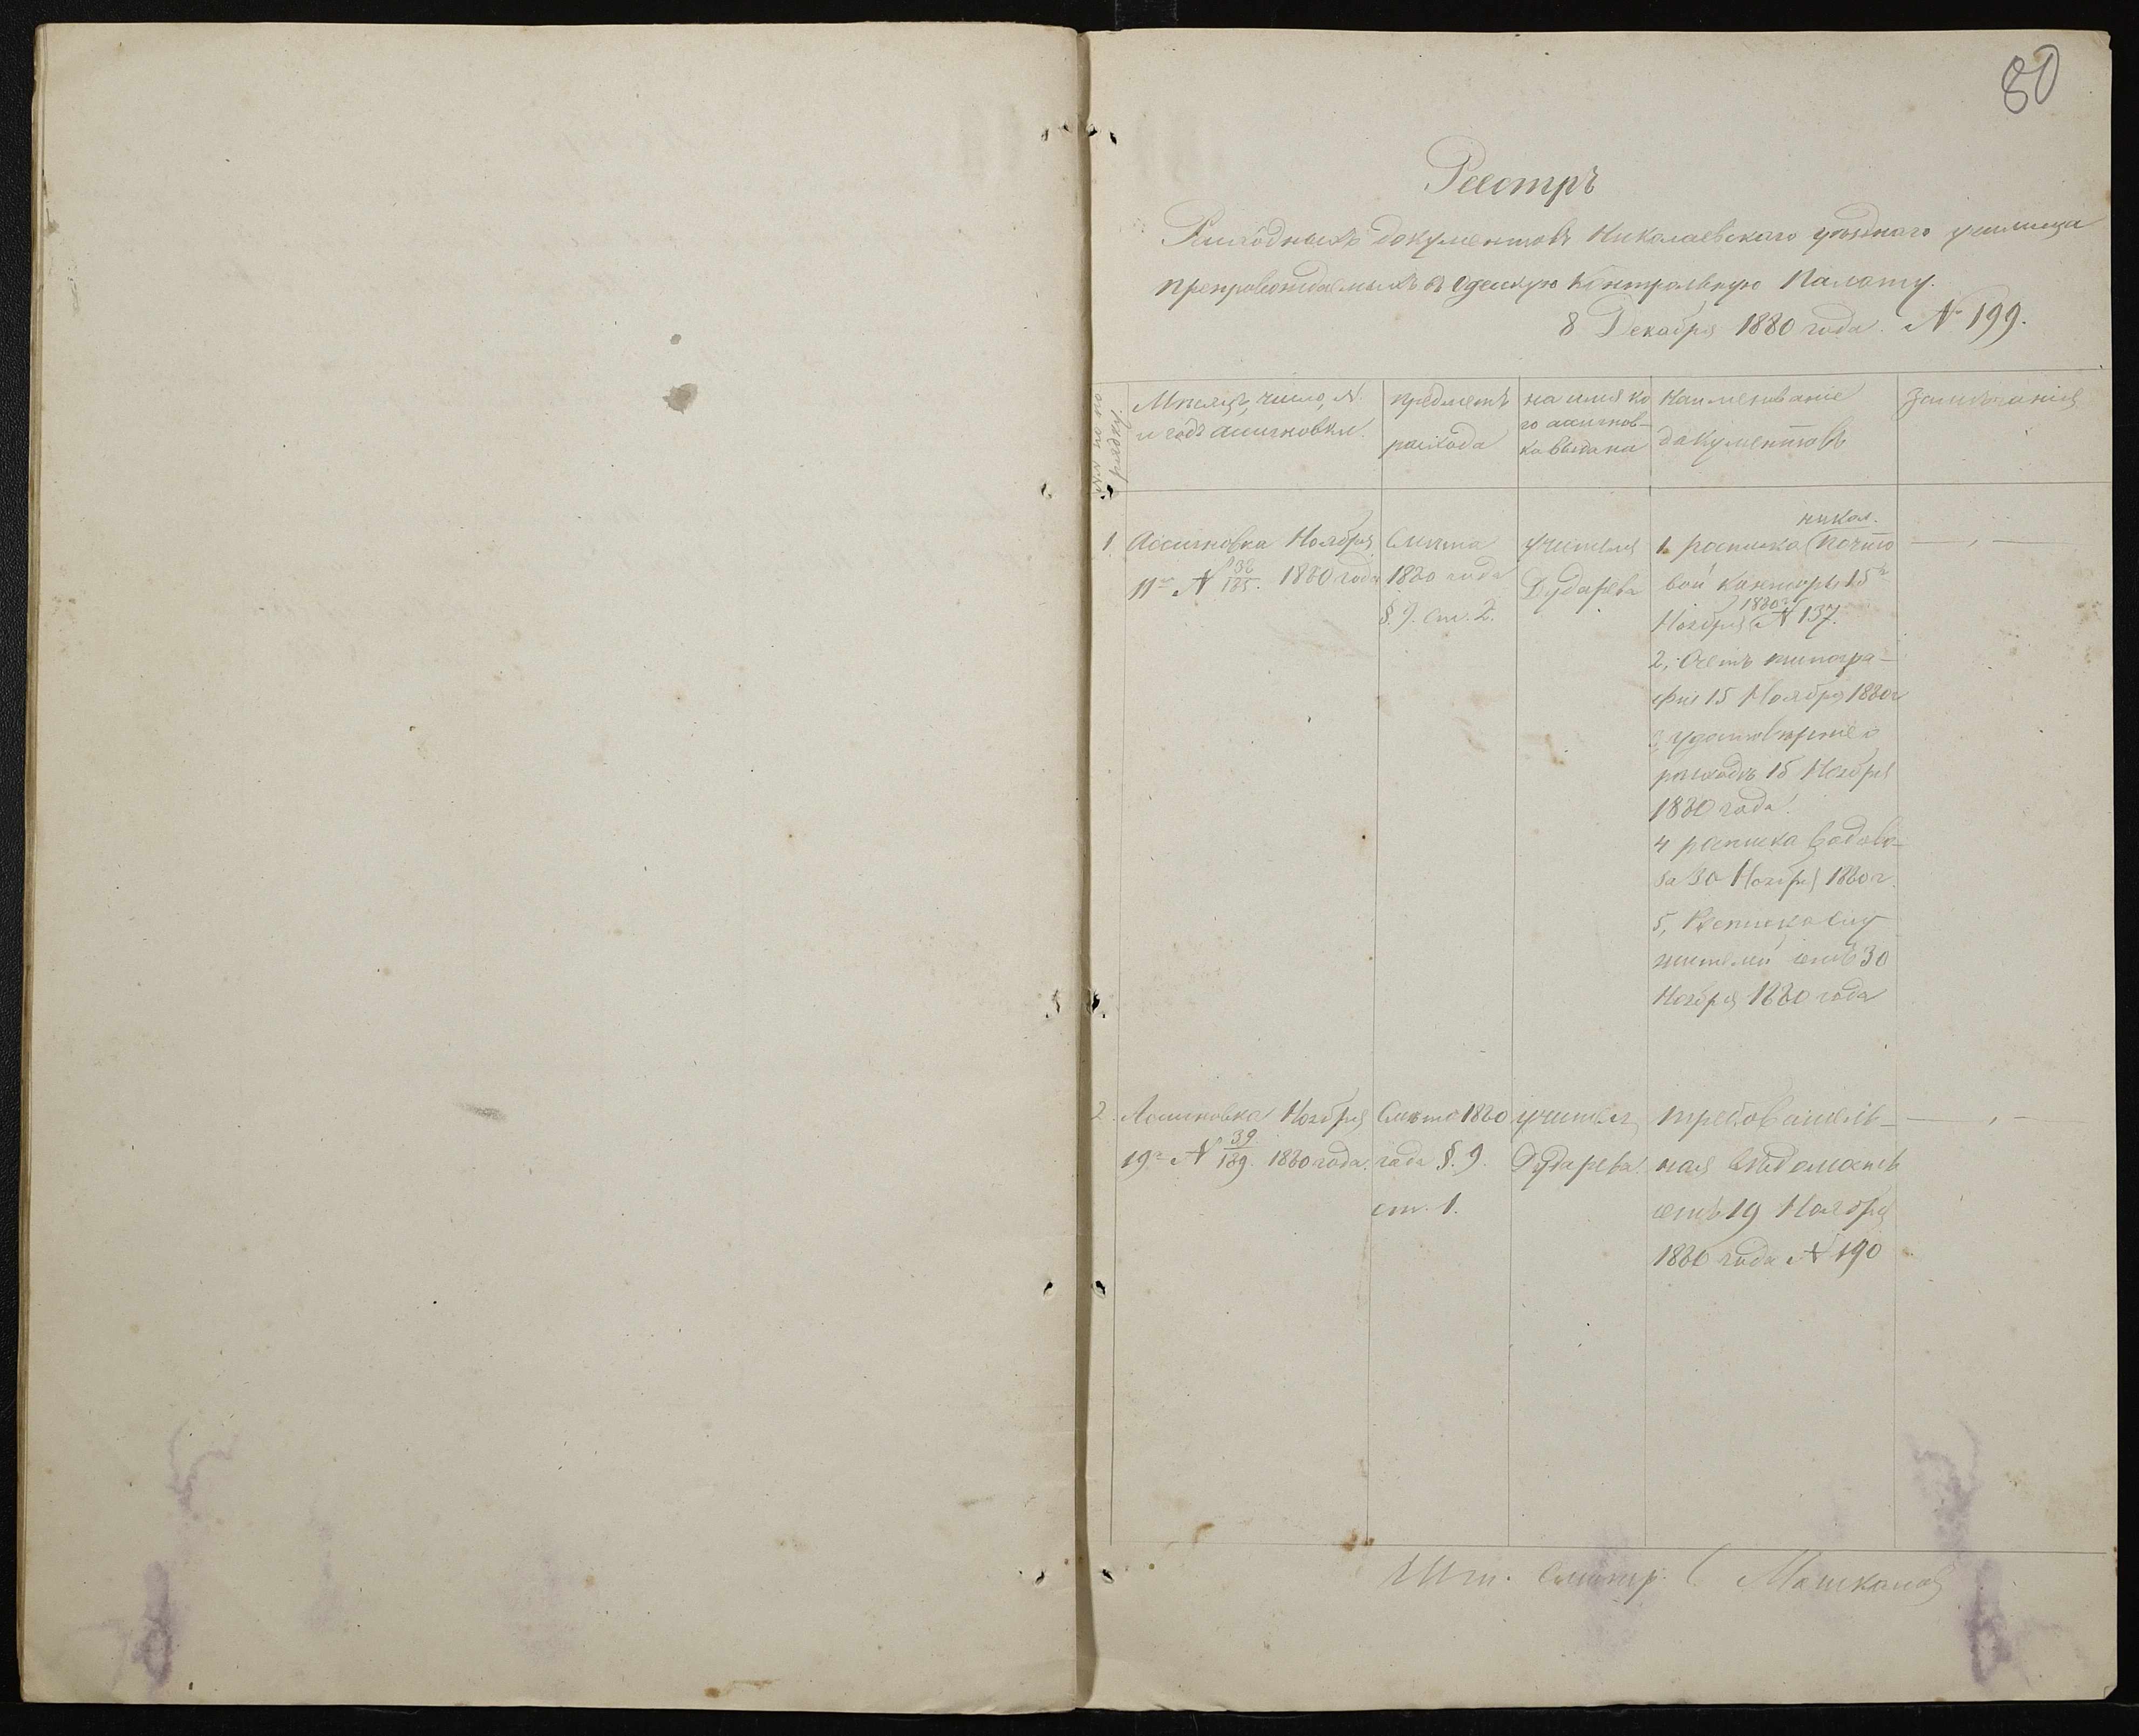 80
Реестръ
Расходныхъ документовъ Николаевскаго уѣзднаго училища
препровождаемыхъ въ Одесскую Контрольную Палату.
8 Декабря 1880 года. № 199.
№№ по по
рядку.
Мѣсяцъ, число, №
и годъ ассигновки.
предметъ
расхода
на имя ко
го ассигнов-
ка выдана
Наименованіе
документовъ
Замѣчанія
1
Ассигновка Ноября
11го № 38/185. 1880 года
Смѣта
1880 года
§. 9. ст. 2.
учителя
Дударева
никол.
1. росписка почто
вой конторы 15го
1880 г.
Ноября № 137.
2, Счетъ типогра-
фіи 15 Ноября 1880 г
3, удостовѣреніе о
расходѣ 15 Ноября
1880 года.
4 росписка Водово-
за 30 Ноября 1880 г.
5, Росписка слу
жителей отъ 30
Ноября 1880 года
2.
Ассигновка Ноября
19го № 39/189. 1880 года.
Смѣта 1880
года §. 9.
ст. 1.
учителя
Дударева.
требователь-
ная вѣдомость
отъ 19 Ноября
1880 года № 190
Шт. Смотр. С. Машкановъ